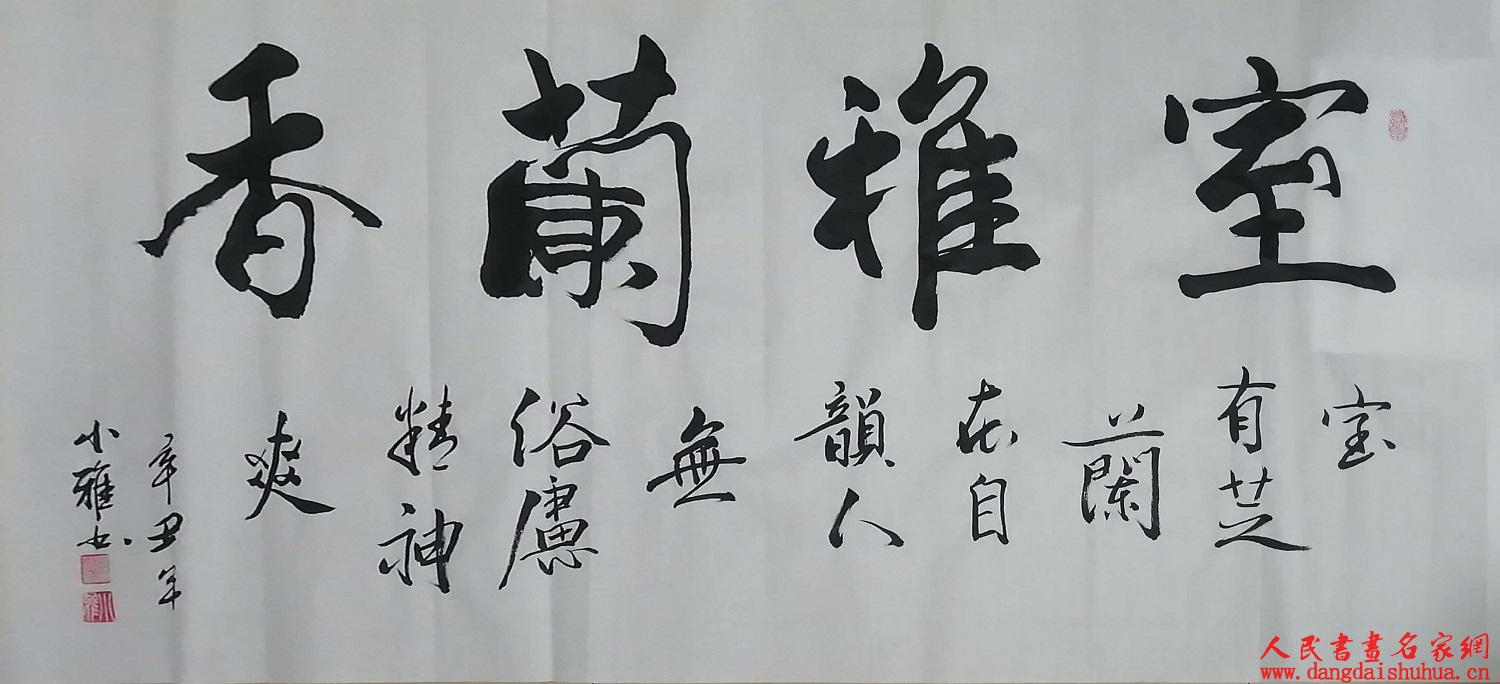 室雅蘭香
室
有芝
蘭
春自
韻人
無
俗慮
精神
爽
辛丑年
小雅书
小雅
人民書畫名家網
www.dangdaishuhua.cn